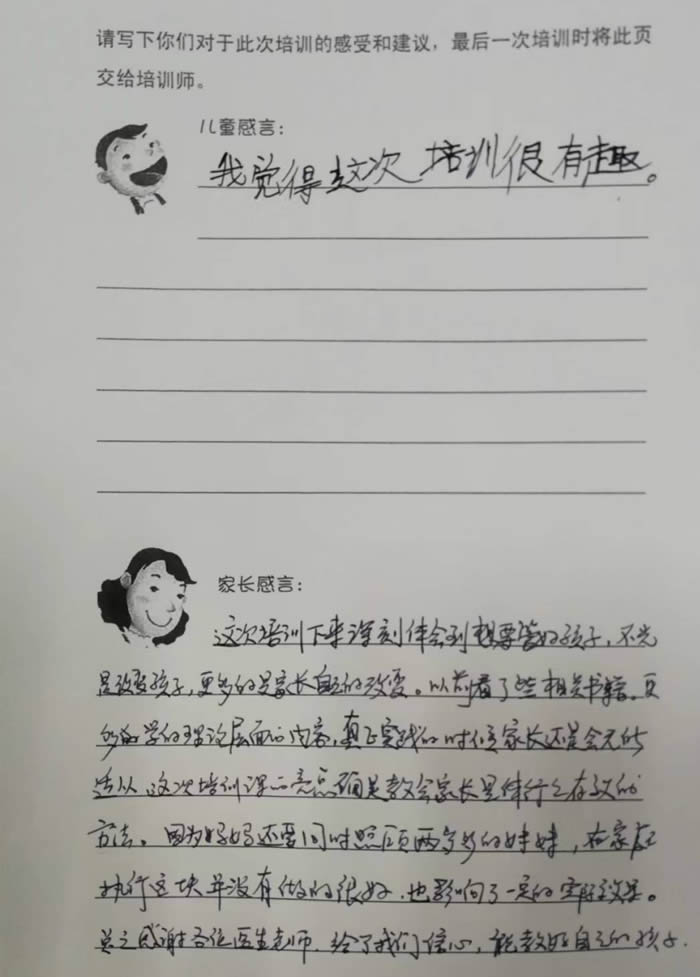 请写下你们对于此次培训的感受和建议，最后一次培训时将此页
交给培训师。
儿童感言：
我觉得这次培训很有趣。
家长感言：
这次培训下来深刻体会到想要管好孩子，不光
是改变孩子，更多的是家长自己的改变。以前看了些相关书籍，更
多的学的理论层面的内容，真正实践的时候家长还是会无所
适从，这次培训课的亮点确是教会家长具体行之有效的
方法。因为妈妈还要同时照顾两岁多的妹妹，在家庭
执行这块并没有做的很好，也影响了一定的实际效果。
总之感谢各位医生老师，给了我们信心，能教好自己的孩子.